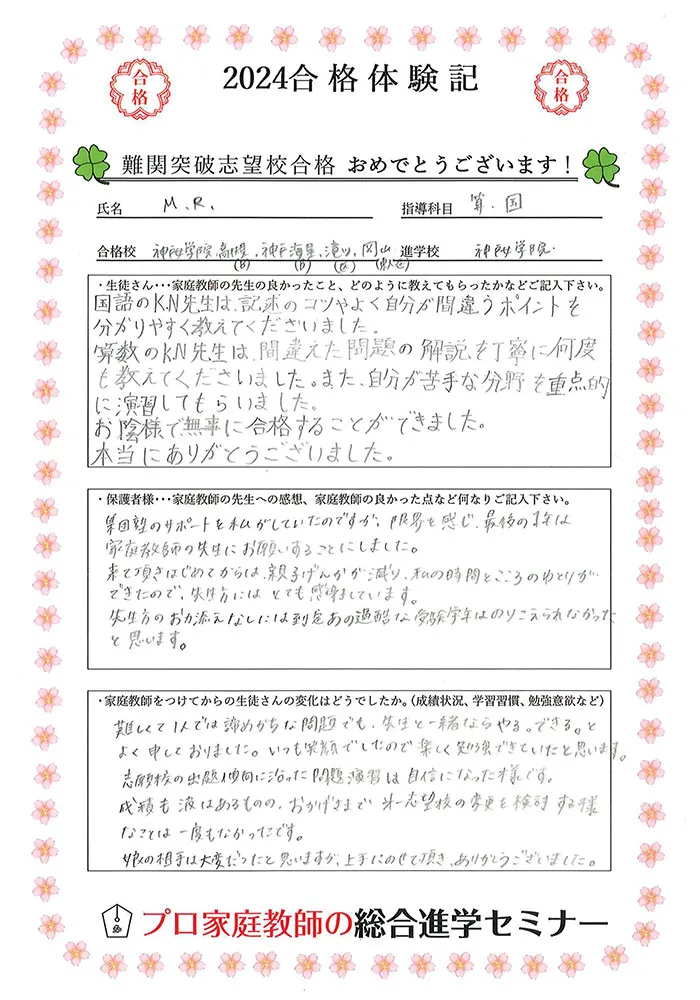 合格
2024合格体験記
合格
難関突破志望校合格 おめでとうございます！
氏名 M.R. 指導科目 算・国
合格校 神戸学院高槻, 神戸海星, 滝川, 岡山 進学校 神戸学院.
・生徒さん・・・家庭教師の先生の良かったこと、どのように教えてもらったかなどご記入下さい。
国語のKN先生は、記述のコツやよく自分が間違うポイントを
分かりやすく教えてくださいました。
算数のKN先生は、間違えた問題の解説を丁寧に何度
も教えてくださいました。また、自分が苦手な分野を重点的
に演習してもらいました。
お陰様で無事に合格することができました。
本当にありがとうございました。
・保護者様・・・家庭教師の先生への感想、家庭教師の良かった点など何なりご記入下さい。
集団塾のサポートを私がしていたのですが、限界を感じ、最後の1年は
家庭教師の先生にお願いすることにしました。
来て頂きはじめてからは、親子げんかが減り、私の時間とこころのゆとりが
できたので、先生方には とても感謝しています。
先生方のお力添えなしには到底あの過酷な受験学年はのりこえられなかった
と思います。
・家庭教師をつけてからの生徒さんの変化はどうでしたか。（成績状況、学習習慣、勉強意欲など）
難しくて1人では諦めがちな問題でも、先生と一緒ならやる。できる。と
よく申しておりました。いつも笑顔でしたので楽しく勉強できていたと思います。
志願校の出題傾向に沿った問題演習は自信になった様です。
成績も波はあるものの、おかげさまで 第一志望校の変更を検討する様
なことは一度もなかったです。
娘の相手は大変だったと思いますが、上手にのせて頂き、ありがとうございました。
プロ家庭教師の総合進学セミナー